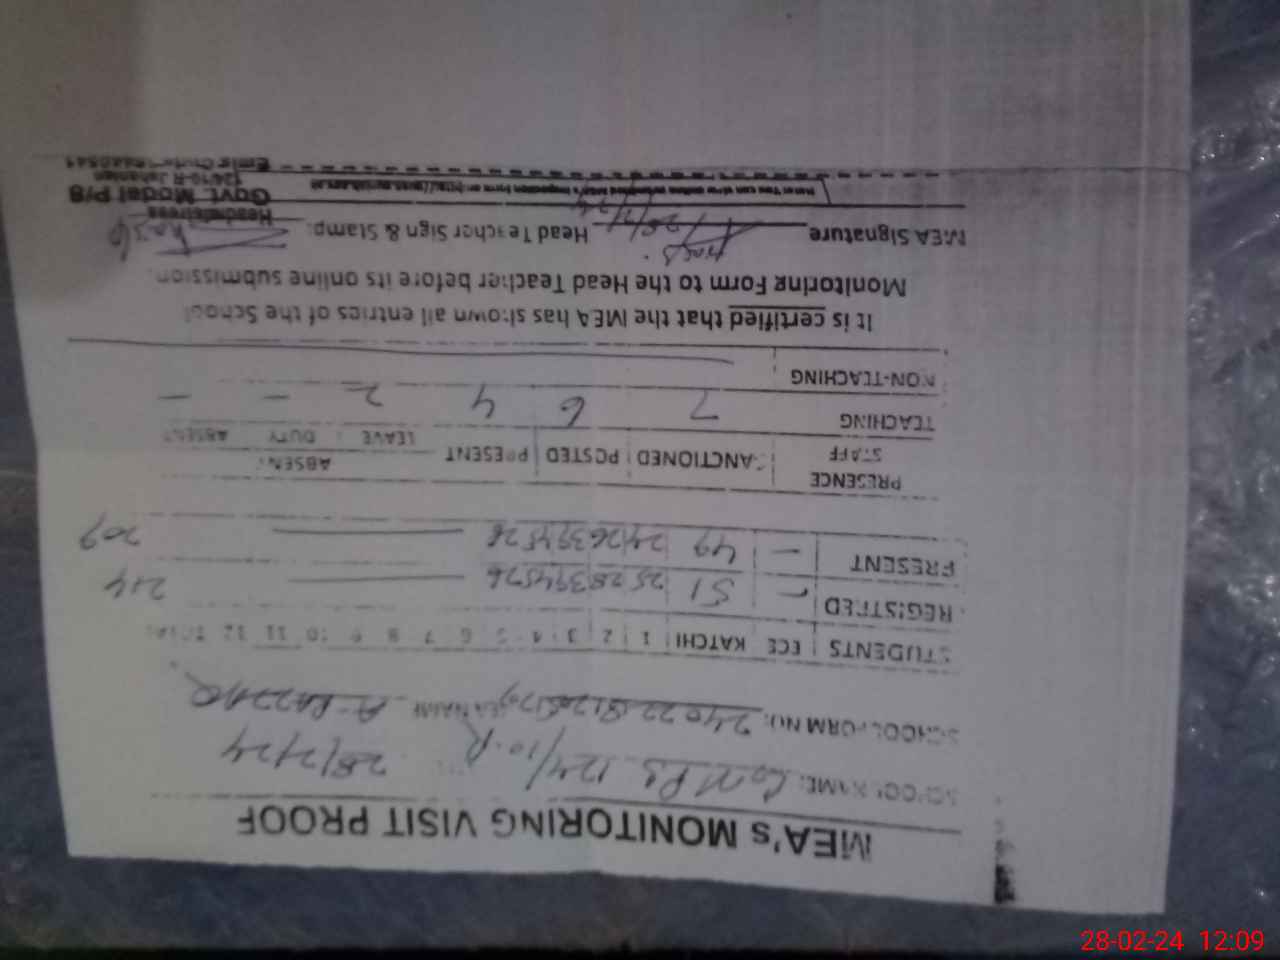 MEA's MONITORING VISIT PROOF
SCHOOL NAME: GMPS 124/10-R 28/2/24
SCHOOL FORM NO: MEA NAME A. RAZZAQ
STUDENTS ECE KATCHI 1 2 3 4 5 6 7 8 9 10 11 12 TOTAL
REGISTERED - 51 25 28 39 45 26 214
PRESENT - 49 24 26 39 45 26 209
PRESENCE STAFF SANCTIONED POSTED PRESENT ABSENT
LEAVE DUTY ABSENT
TEACHING 7 6 4 2 - -
NON-TEACHING
It is certified that the MEA has shown all entries of the School
Monitoring Form to the Head Teacher before its online submission.
MEA Signature 28/2/24 Head Teacher Sign & Stamp:
Headmistress
Govt. Model P/S
124/10-R Jahanian
Note: You can view online
28-02-24 12:09